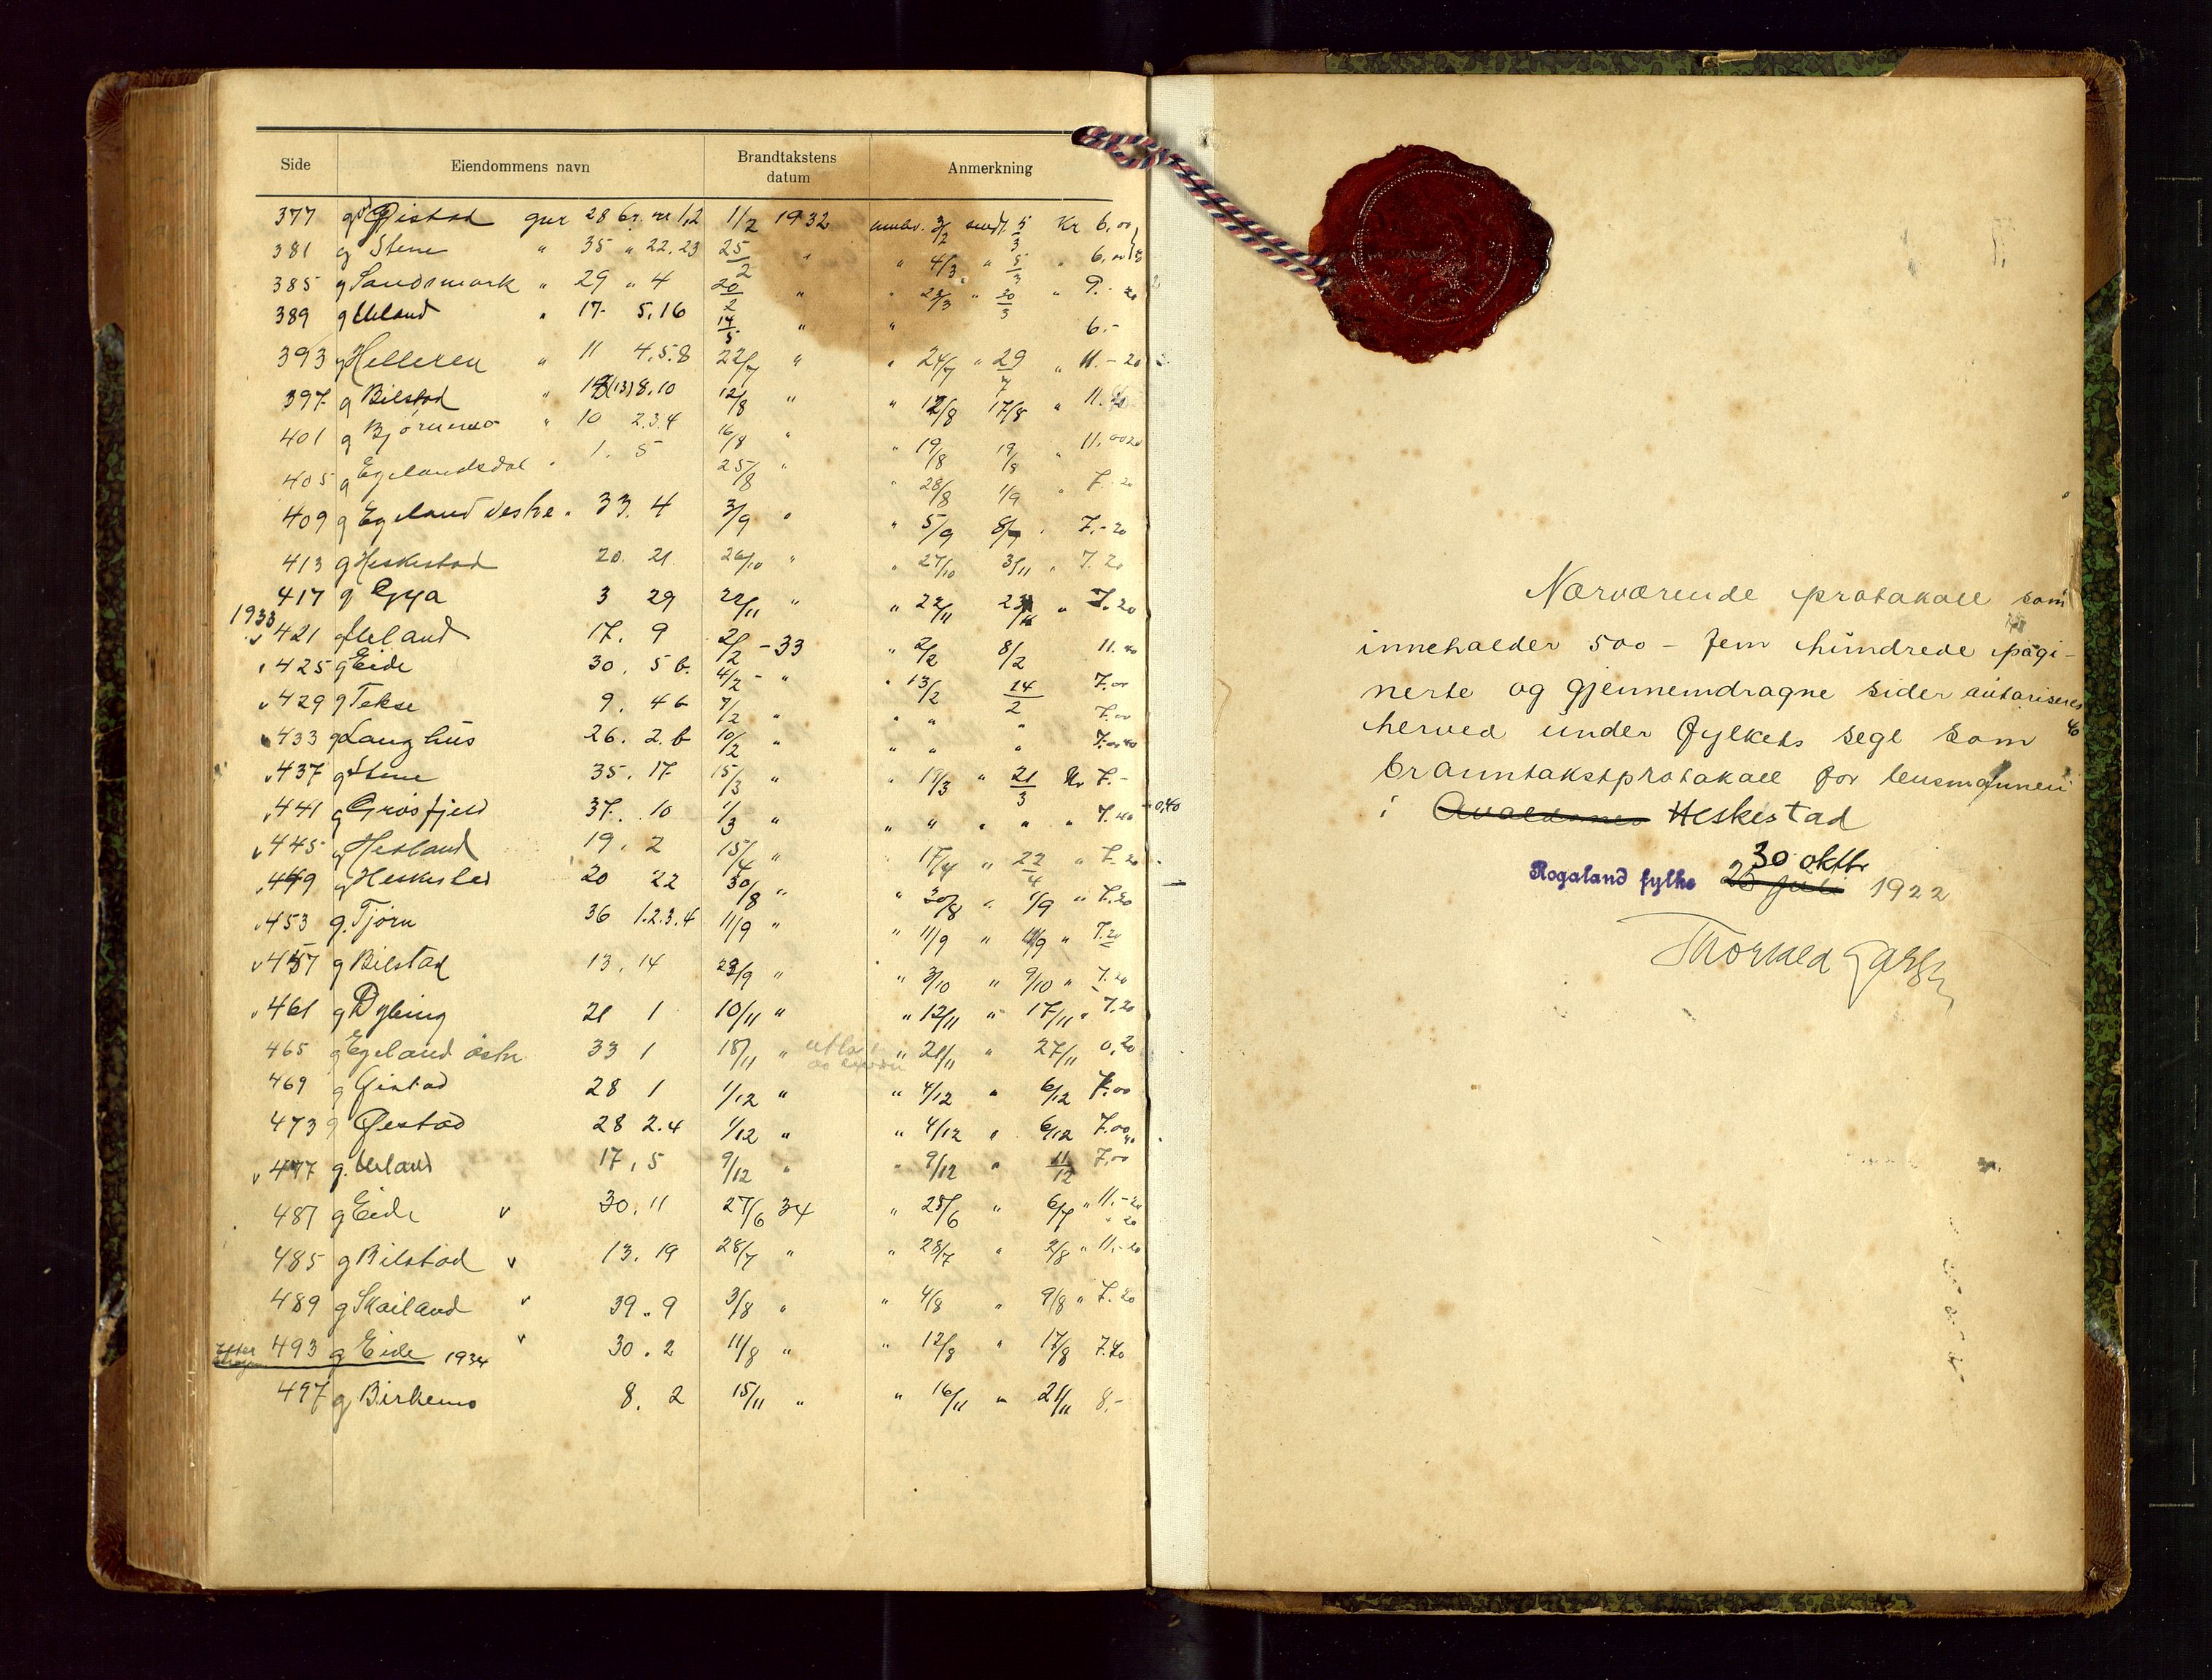 Side Eiendommens navn Brandtakstens datum Anmerkning
377 g Øistad gnr 28 br. nr 1,2 1/2 1932 3/2 sendt 5/3 Kr 6,00
381 g Stene " 35 " 22,23 25/2 " " 4/3 " 5/3 " 6,00
385 g Sandsmark " 29 " 4 20/2 " " 23/3 " 30/3 " 9.- 20
389 g Ueland " 17 5,16 14/5 " " 6.-
393 g Helleren " 11 4,5.8 22/7 " " 24/7 " 29/7 " 11.- 20
397 g Bilstad " (13) 8,10 12/8 " " 12/8 17/8 " 11.
401 g Bjørnemo " 10 2.3.4 16/8 " " 19/8 19/8 " 11.00 20
405 g Egelandsdal " 1. 5 25/8 " " 28/8 1/9 " 7.- 20
409 g Egeland vestre " 33. 4 3/9 " " 5/9 8/9 " 7.- 20
413 g Heskestad 20. 21. 26/10 " " 27/10 3/11 " 7.20
417 g Gya 3 29 22/11 " " 22/11 " 7.20
1933
v 421 g Ueland 17. 9 2/2 - 33 " 2/2 8/2 11.40
425 g Eide 30. 5 b. 4/2 - " " 13/2 14/2 7.00
v 429 g Tekse 9. 4 b 7/2 " " " " 7.00
433 g Langhus 26. 2. b 10/2 " " " " 7.00 40
v 437 g Stene 35. 17 15/3 " " 19/3 " 21/3 Kr 7.-
v 441 g Grøsfjeld 37. 10 1/3 " " " " " " 7.40 0,40
v 445 g Hetland 19. 2 15/4 " 17/4 " 22/4 " 7.20
v 449 g Heskestad 20 22 30/8 " " 30/8 " 1/9 " 7.20
v 453 g. Tjørn 36 1.2.3.4 11/9 " " 11/9 " 11/9 " 7.20
v 457 g Bilstad 13. 14 29/9 " " 3/10 " 9/10 " 7.20
v 461 g Dybing 21 1 10/11 " " 12/11 " 17/11 " 7.20
465 g Egeland østre 33 1 18/11 " " 21/11 " 27/11 0,20
469 g Øistad 28 1 1/12 " " 4/12 " 6/12 7.00
473 g Øestad 28 2.4 1/12 " " 4/12 " 6/12 7.00
v 477 g. Ueland 17, 5 9/12 " " 9/12 " 11/12 7,00
481 g Eide v 30. 11 27/6 34 " 28/6 " 6/7 " 11.- 20
485 g Bilstad v 13. 19 28/7 " " 28/7 " 2/8 " 11.- 20
489 g Skailand v 39. 9 3/8 " " 4/8 " 9/8 " 7.20
493 g Eide 1934 v 30. 2 11/8 " " 12/8 " 17/8 7.40
497 g Birkemo 8. 2 15/11 " " 16/11 " 21/11 8.-
Nærværende protokoll som
inneholder 500 - fem hundrede pagi-
nerte og gjennemdragne sider autoriseres
herved under fylkets segl som
branntakstprotokoll for lensmannen
i Avaldsnes Heskestad
30 oktbr
Rogaland fylke 25 juli 1922